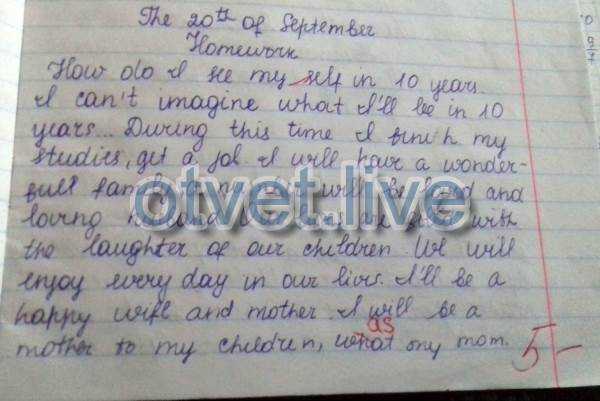 The 20th of September
Homework
How do I see my self in 10 years.
I can't imagine what I'll be in 10
years... During this time I finish my
studies, get a job. I will have a wonder-
full family. My will be kind and
loving husband. with
the laughter of our children. We will
enjoy every day in our lives. I'll be a
happy wife and mother. I will be a
as
mother to my children, what my mom.
5-
otvet.live